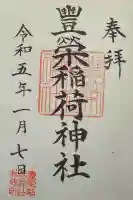 奉拝
豐榮稲荷神社
令和五年一月七日